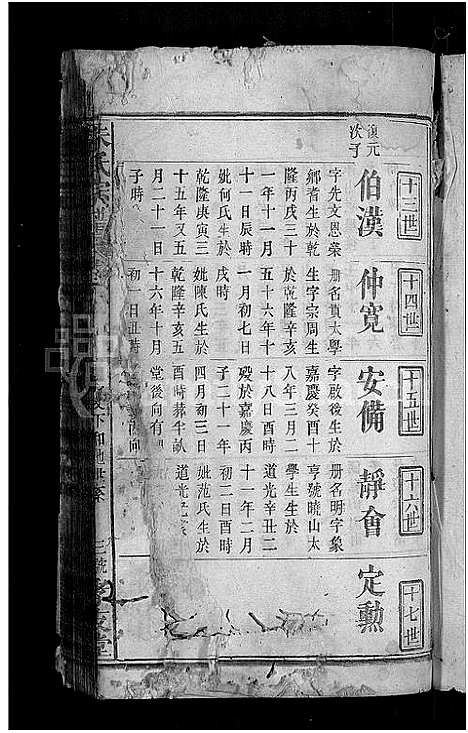 十三世
復元
次子
伯漢
字先文恩榮
鄉耆生於乾
隆丙戌三十
一年十一月
十一日辰時
妣何氏生於
乾隆庚寅三
十五年又五
月二十一日
子時
十四世
仲寬
册名貫太學
生字宗周生
於乾隆辛亥
五十六年十
一月初七日
戌時
妣陳氏生於
乾隆辛亥五
十六年十月
初一日丑時
十五世
安備
字啟後生於
嘉慶癸酉十
八年三月二
十八日酉時
歿於嘉慶丙
子二十一年
四月初三日
酉時葬
堂後向有
十六世
靜會
册名明字象
亨號曉山太
學生生於
道光辛丑二
十一年二月
初二日酉時
妣范氏生於
道光
十七世
定勳
朱氏宗譜
三號
堂